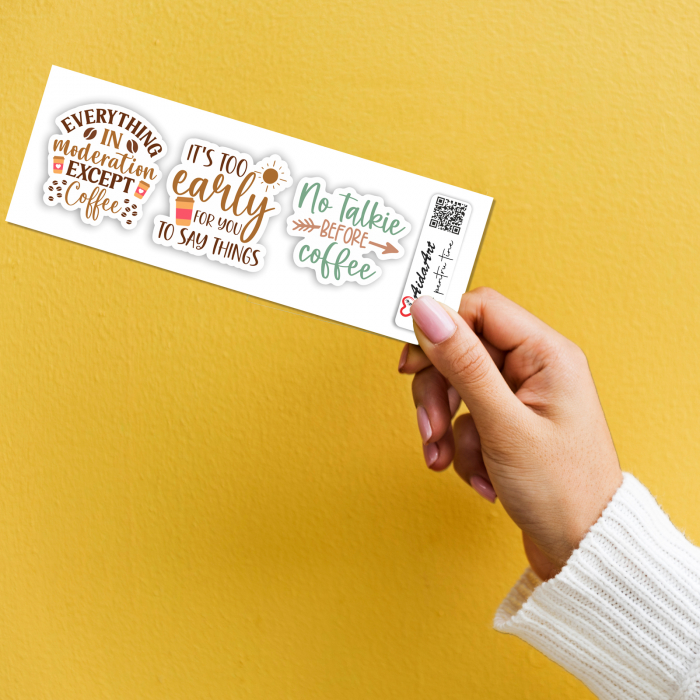 EVERYTHING
IN
moderation
EXCEPT
Coffee
IT'S TOO
early
FOR YOU
TO SAY THINGS
No talkie
BEFORE
coffee
AidaArt
pentru tine